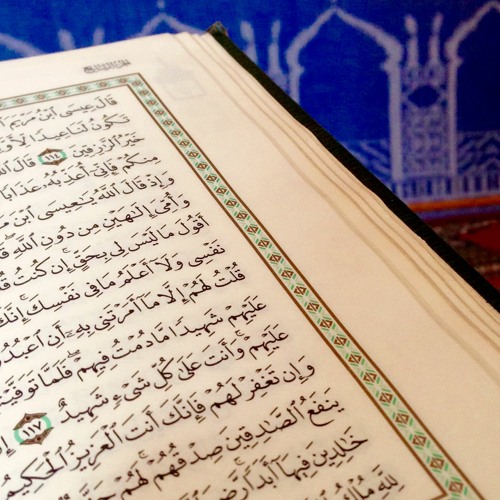 قَالَ عِيسَى ٱبْنُ مَرْيَمَ
تَكُونُ لَنَا عِيدًا
خَيْرُ ٱلرَّٰزِقِينَ ١١٤ قَالَ
مِنكُمْ فَإِنِّىٓ أُعَذِّبُهُۥ عَذَابًا
وَإِذْ قَالَ ٱللَّهُ يَٰعِيسَى ٱبْنَ
وَأُمِّىَ إِلَٰهَيْنِ مِن دُونِ ٱللَّهِ
أَقُولَ مَا لَيْسَ لِى بِحَقٍّ إِن كُنتُ
نَفْسِى وَلَآ أَعْلَمُ مَا فِى نَفْسِكَ إِنَّكَ
قُلْتُ لَهُمْ إِلَّا مَآ أَمَرْتَنِى بِهِۦٓ أَنِ ٱعْبُدُ
عَلَيْهِمْ شَهِيدًا مَّا دُمْتُ فِيهِمْ فَلَمَّا تَوَفَّيْتَ
عَلَيْهِمْ وَأَنتَ عَلَىٰ كُلِّ شَىْءٍ شَهِيدٌ ١١٧
وَإِن تَغْفِرْ لَهُمْ فَإِنَّكَ أَنتَ ٱلْعَزِيزُ ٱلْحَكِيمُ
يَنفَعُ ٱلصَّٰدِقِينَ صِدْقُهُمْ لَهُمْ
خَٰلِدِينَ فِيهَآ أَبَدًا
لِلَّهِ مُلْكُ